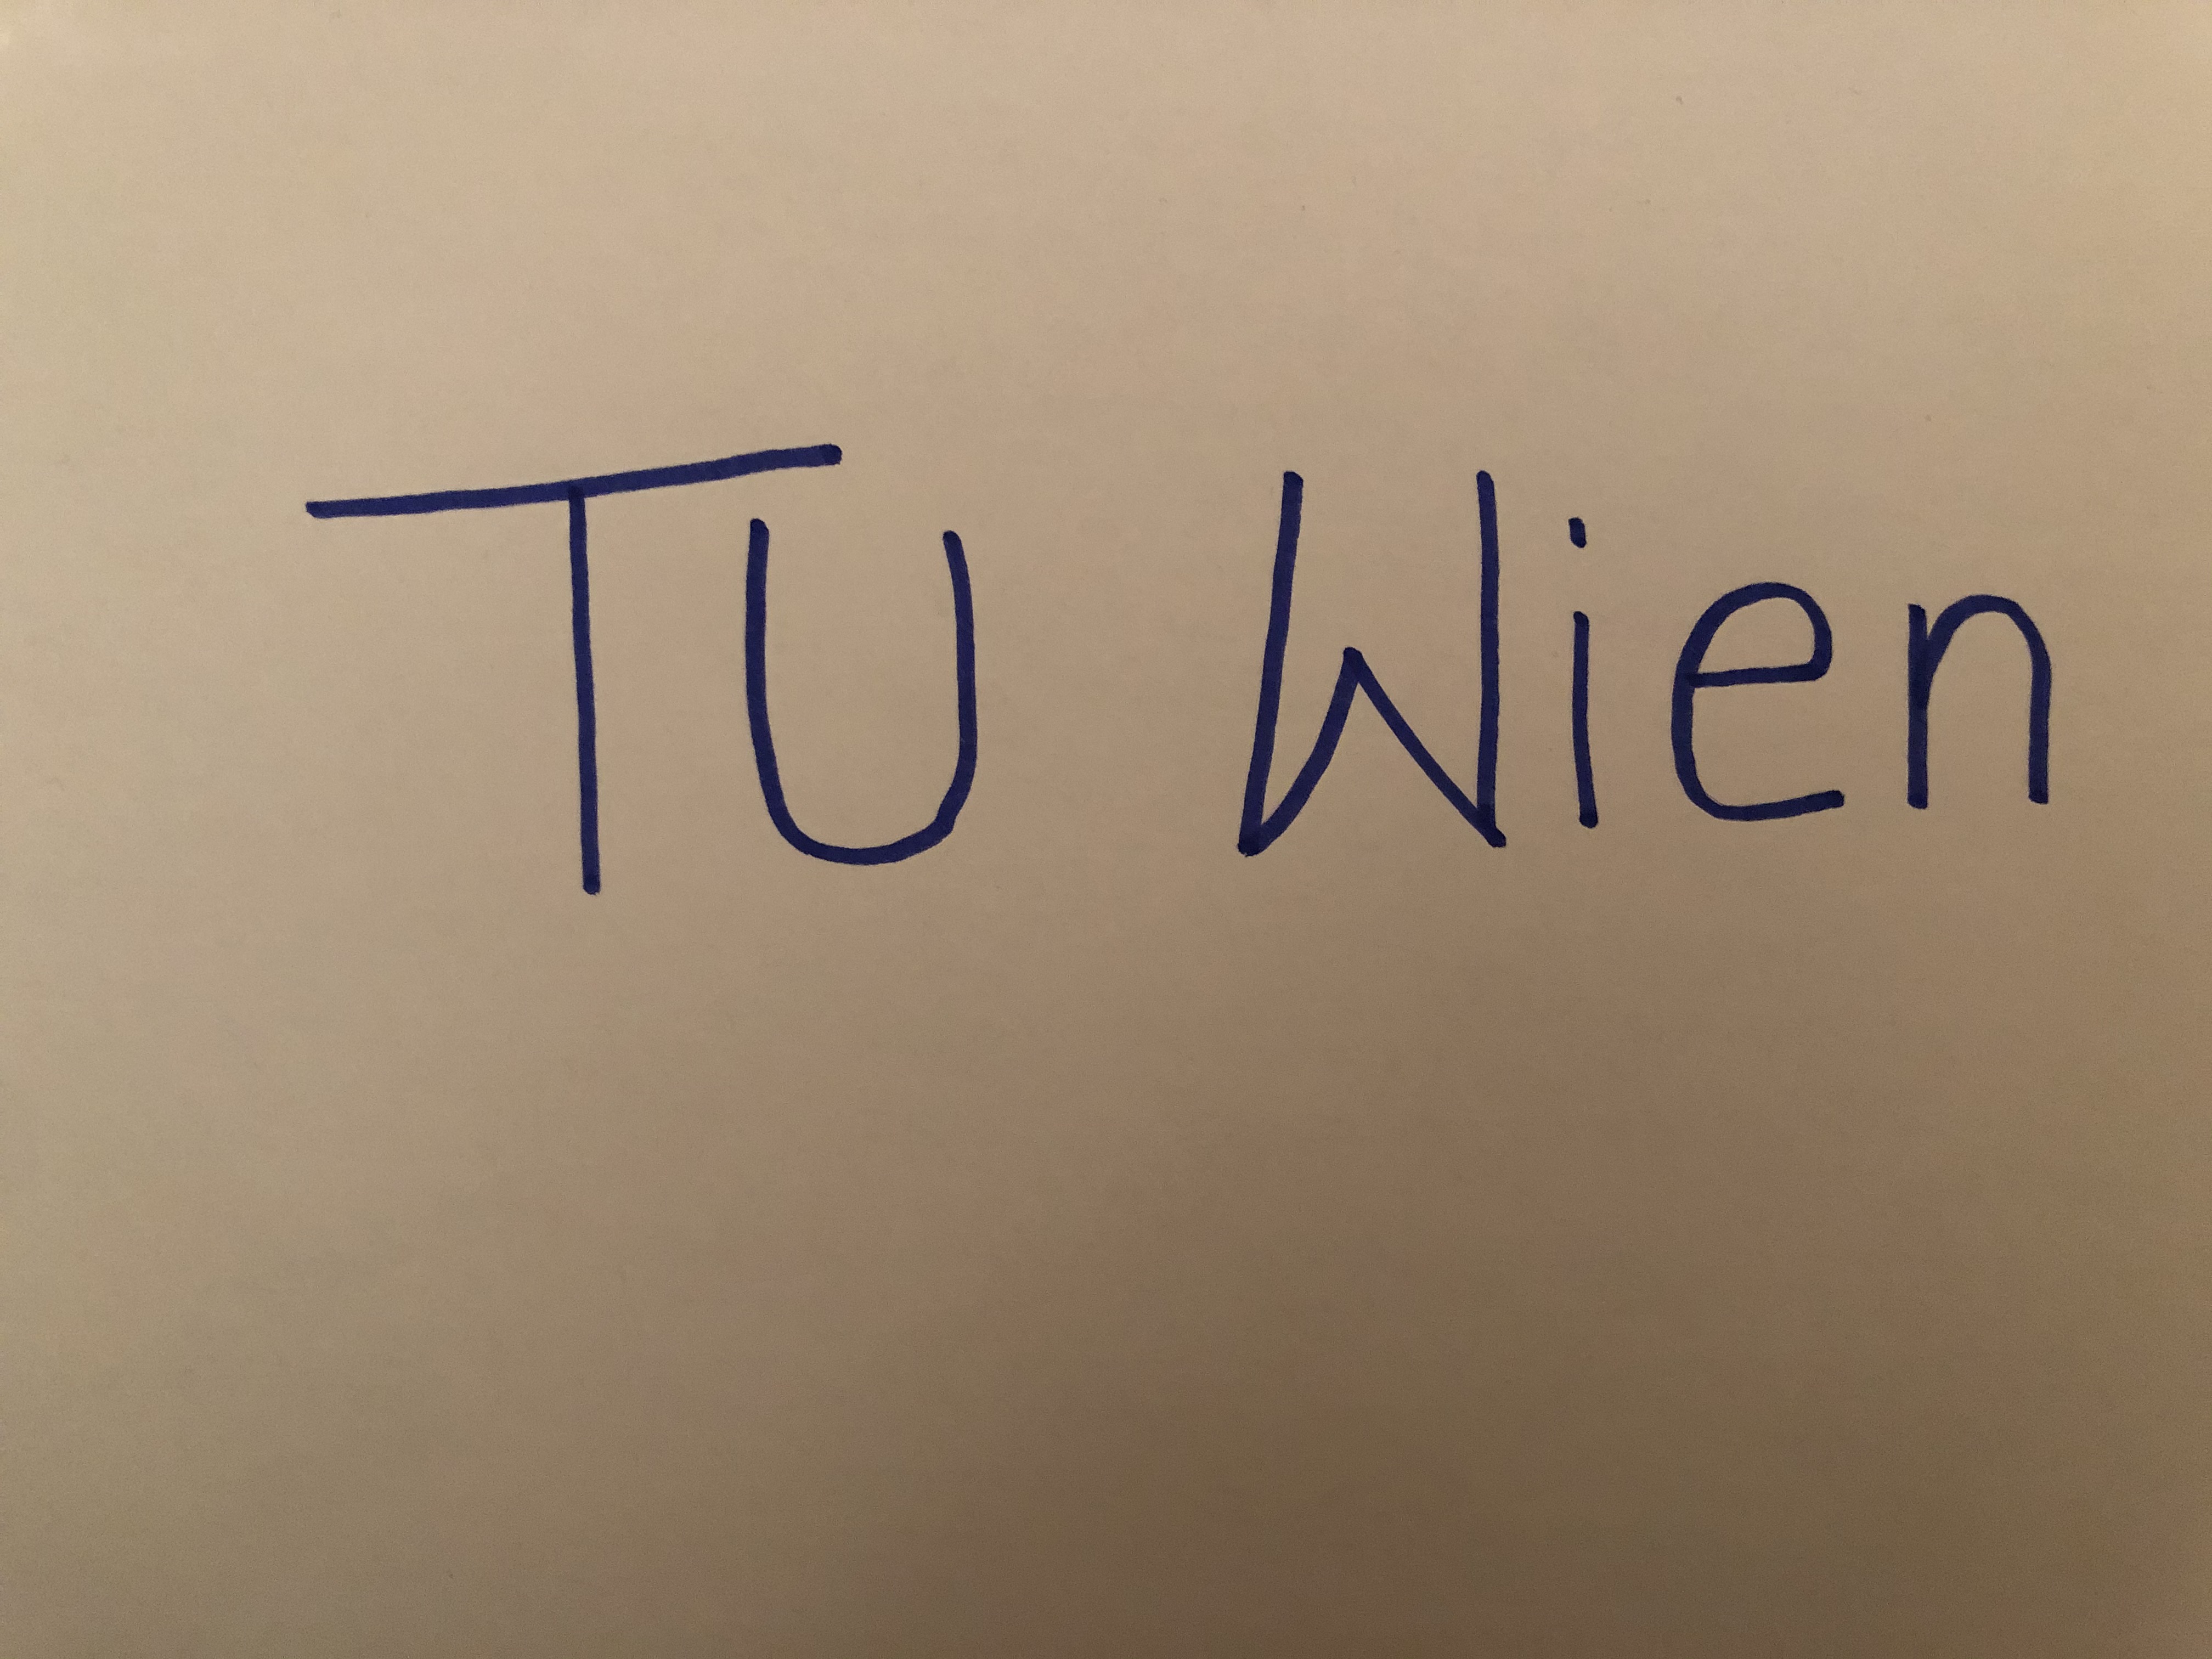 TU Wien